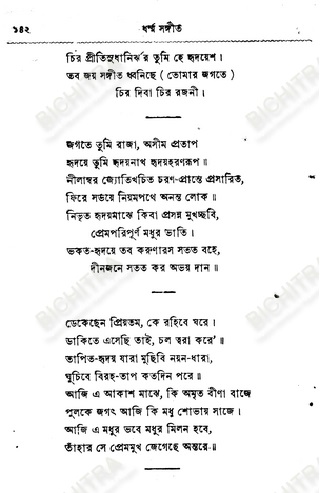 ১৪২ ধর্ম্ম সঙ্গীত
চির প্রীতিসুধানির্ঝর তুমি হে হৃদয়েশ।
তব জয় সঙ্গীত ধ্বনিছে ( তোমার জগতে )
চির দিবা চির রজনী।
জগতে তুমি রাজা, অসীম প্রতাপ
হৃদয়ে তুমি হৃদয়নাথ হৃদয়হরণরূপ॥
নীলাম্বর জ্যোতিখচিত চরণ-প্রান্তে প্রসারিত,
ফিরে সভয়ে নিয়মপথে অনন্ত লোক॥
নিভৃত হৃদয়মাঝে কিবা প্রসন্ন মুখচ্ছবি,
প্রেমপরিপূর্ণ মধুর ভাতি।
ভকত-হৃদয়ে তব করুণারস সতত বহে,
দীনজনে সতত কর অভয় দান॥
ডেকেছেন প্রিয়তম, কে রহিবে ঘরে।
ডাকিতে এসেছি তাই, চল ত্বরা করে'॥
তাপিত-হৃদয় যারা মুছিবি নয়ন-ধারা,
ঘুচিবে বিরহ-তাপ কতদিন পরে॥
আজি এ আকাশ মাঝে, কি অমৃত বীণা বাজে
পুলকে জগৎ আজি কি মধু শোভায় সাজে।
আজি এ মধুর ভবে মধুর মিলন হবে,
তাঁহার সে প্রেমমুখ জেগেছে অন্তরে॥
BICHITRA
BICHITRA
BICHITRA
BICHITRA
BICHITRA
BICHITRA